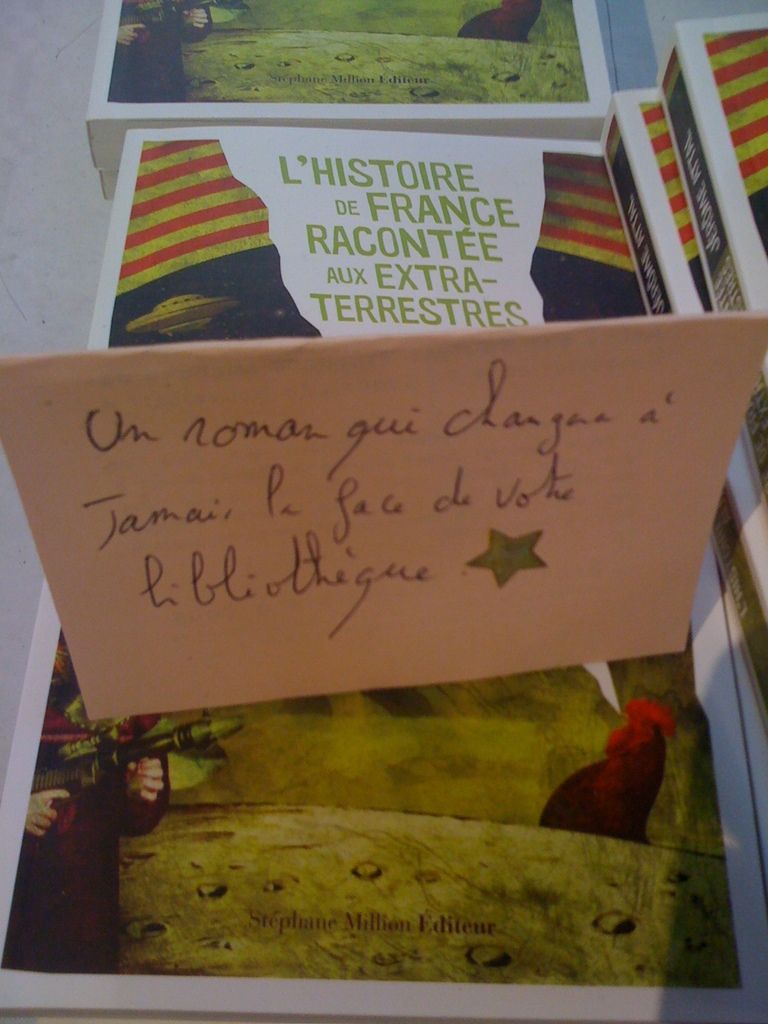 Stéphane Million Éditeur
L'HISTOIRE
DE FRANCE
RACONTÉE
AUX EXTRA-
TERRESTRES
Un roman qui changera à
Jamais la face de votre
bibliothèque.
Stéphane Million Éditeur
JÉRÔME ATTAL